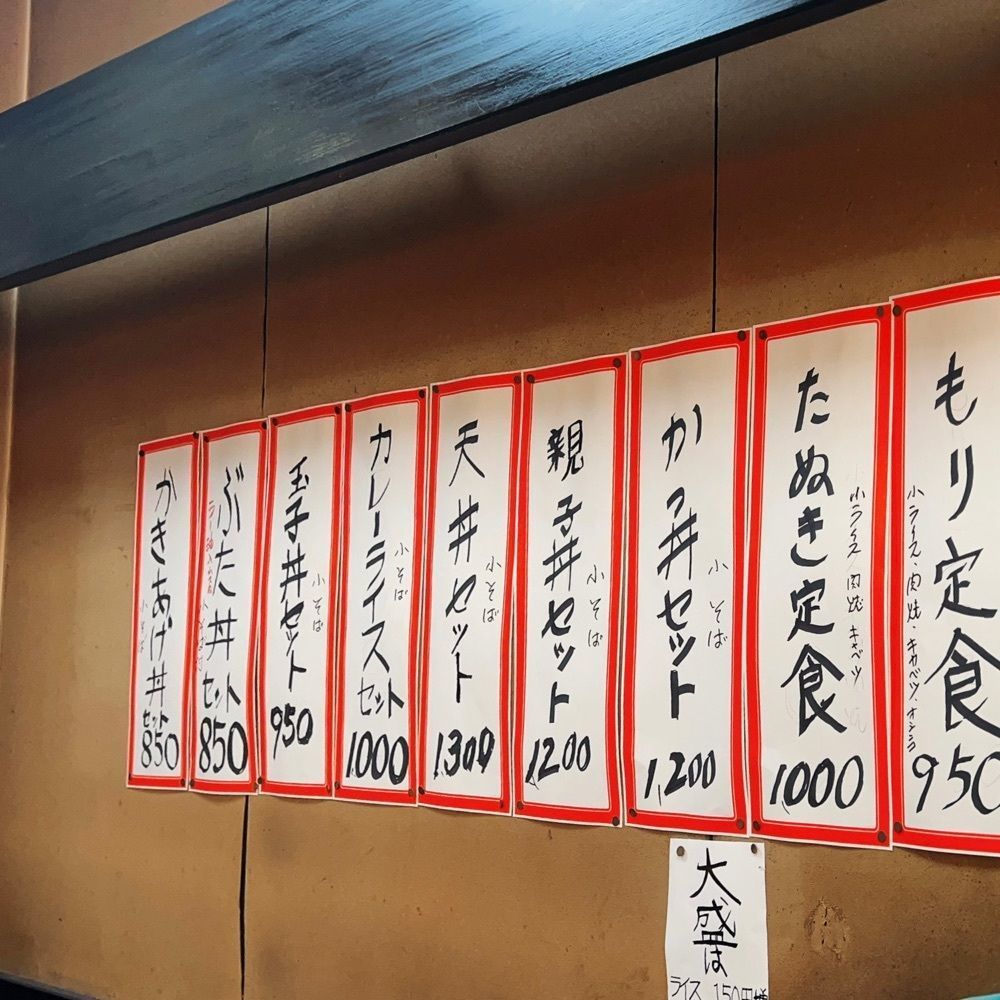 もり定食
小ライス・肉焼・キャベツ・オシンコ
950
たぬき定食
小ライス/肉焼・キャベツ
1000
かつ丼セット
小そば
1,200
親子丼セット
小そば
1,200
天丼セット
小そば
1,300
カレーライスセット
小そば
1,000
玉子丼セット
小そば
950
ぶた丼セット
850
かきあげ丼セット
小そば
850
大盛は
ライス 150円増